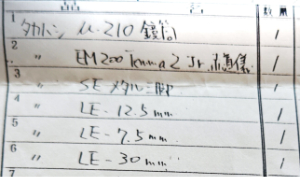 品 名 数 量
1 タカハシ μ-210 鏡筒 1
2 〃 EM200 Temma2 Jr. 赤道儀 1
3 〃 SE メタル三脚 1
4 〃 LE-12.5mm 1
5 〃 LE-7.5mm 1
6 〃 LE-30mm 1
7